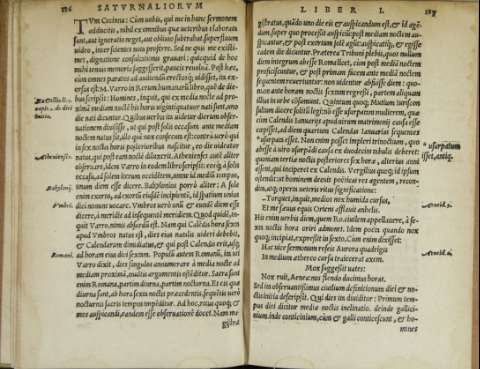 126 SATVRNALIORVM
TVM Cecinna: Cum uobis, qui me in hunc sermonem
adducitis, nihil ex omnibus quæ ueteribus elaborata
sunt, aut ignoratio neget, aut obliuio subtrahat: superfluum
uideo, inter scientes nota proferre. Sed ne quis me existi-
met, dignatione consultationis grauari: quicquid de hoc
mihi tenuis memoria suggesserit, paucis reuoluã. Post hæc,
cùm omnes paratos ad audiendũ erectosq; uidisset, in ex-
orsus est: M. Varro in
bus scripsit: Homines, inquit, qui ex media nocte ad pro-
ximã mediã noctem his horis uigintiquatuor nati sunt, uno
die nati dicuntur. Quibus uerbis ita uidetur dierum obser-
uationem diuisisse, ut qui post solis occasum ante mediam
noctem natus sit, illo quo nox consecuta est: contrà uerò qui
in sex noctis horis posterioribus nascitur, eo die uideatur
natus, qui post eam noctẽ diluxerit. Athenienses aliter
obseruare, idem Varro in eodem libro scripsit: eosq; à solis
occasu, ad solem iterum occidentem, omne id mediũ tempus,
unum diem esse dicere. Babylonios porrò aliter: A sole
enim exorto, ad exortũ eiusdẽ incipientẽ, id spatium unius
diei nomine uocare. Vmbros uerò unũ & eundẽ diem esse
dicere, à meridie ad insequentẽ meridiem. Quod quidẽ, in-
quit Varro, nimis absurdũ est. Nam qui Calendis hora sexta
apud Vmbros natus est, dies eius natalis uideri debebit,
& Calendarum dimidiatus, & qui post Calendis erit, usq;
ad horam eius diei sextam. Populũ autem Romanũ, ita uti
Varro dixit, dies singulos annumerare à media nocte ad
mediam proximã, multis argumentis ostẽditur. Sacra sunt
enim Romana, partim diurna, partim nocturna. Et eis quæ
diurna sunt, ab hora sexta noctis præcedentis, sequẽtis uerò
nocturnis sacris tempus impẽditur. Ad hoc, ritus quoq; &
mos auspicandi, eandem esse obseruationẽ docet. Nam ma-
gistra
Athenienses.
Babylonij.
Vmbri.
Romani.
LIBER I. 127
gistratus, quãdo uno die eis & auspicandum est, & id agẽ-
dum, super quo processit auspiciũ: post mediam noctem au-
spicantur, & post exortum solẽ agũt, auspicatiq; & egisse
eadem die dicuntur. Præterea Tribuni plebis, quos nullum
diem integrum abesse Roma licet, cùm post mediã noctem
proficiscuntur, & post primam facem ante mediã noctem
sequentem reuertuntur: non uidentur abfuisse diem: quo-
niam ante horam noctis sextam regressi, partem aliquam
illius in urbe consumunt. Quintum quoq; Mutium iuriscon-
sultum dicere solitũ legi: nõ esse usurpatam mulierem, quæ
cùm Calendis Ianuarijs apud uirum matrimonij causa esse
cœpisset, ad diem quartum Calendas Ianuarias sequentes
* usurpata isset. Non enim posse impleri trinoctium, quo
abesse à uiro usurpãdi causa ex duodecim tabulis deberet:
quoniam tertiæ noctis posteriores sex horæ, alterius anni
essent, qui inciperet ex Calendis. Vergilius quoq; id ipsum
ostendit: ut hominem decuit poëticas res agentem, recon-
dita, atq; operta ueteris ritus significatione:
Torquet, inquit, medios nox humida cursus,
Et me sæuus equis Oriens afflauit anhelis.
His enim uerbis, diem, quem Ro. ciuilem appellauere, à se-
xta noctis hora oriri admonet. Idem poëta quando nox
quoq; incipiat, expressit in sexto. Cùm enim dixisset:
Hac uice sermonum roseis Aurora quadrigis
Iam medium æthereo cursu traiecerat axem.
Mox suggessit uates:
Nox ruit, Aenea: nos flendo ducimus horas.
Ita obseruantissimus ciuilium definitionum diei & no-
ctis initia descripsit. Qui dies ita diuiditur: Primum tem-
pus diei dicitur, mediæ noctis inclinatio. deinde gallici-
nium. inde conticinium, cùm & galli conticescunt, & ho-
mines
* usurpatum
isset, antiq.
Aeneid. 5.
Aeneid. 6.